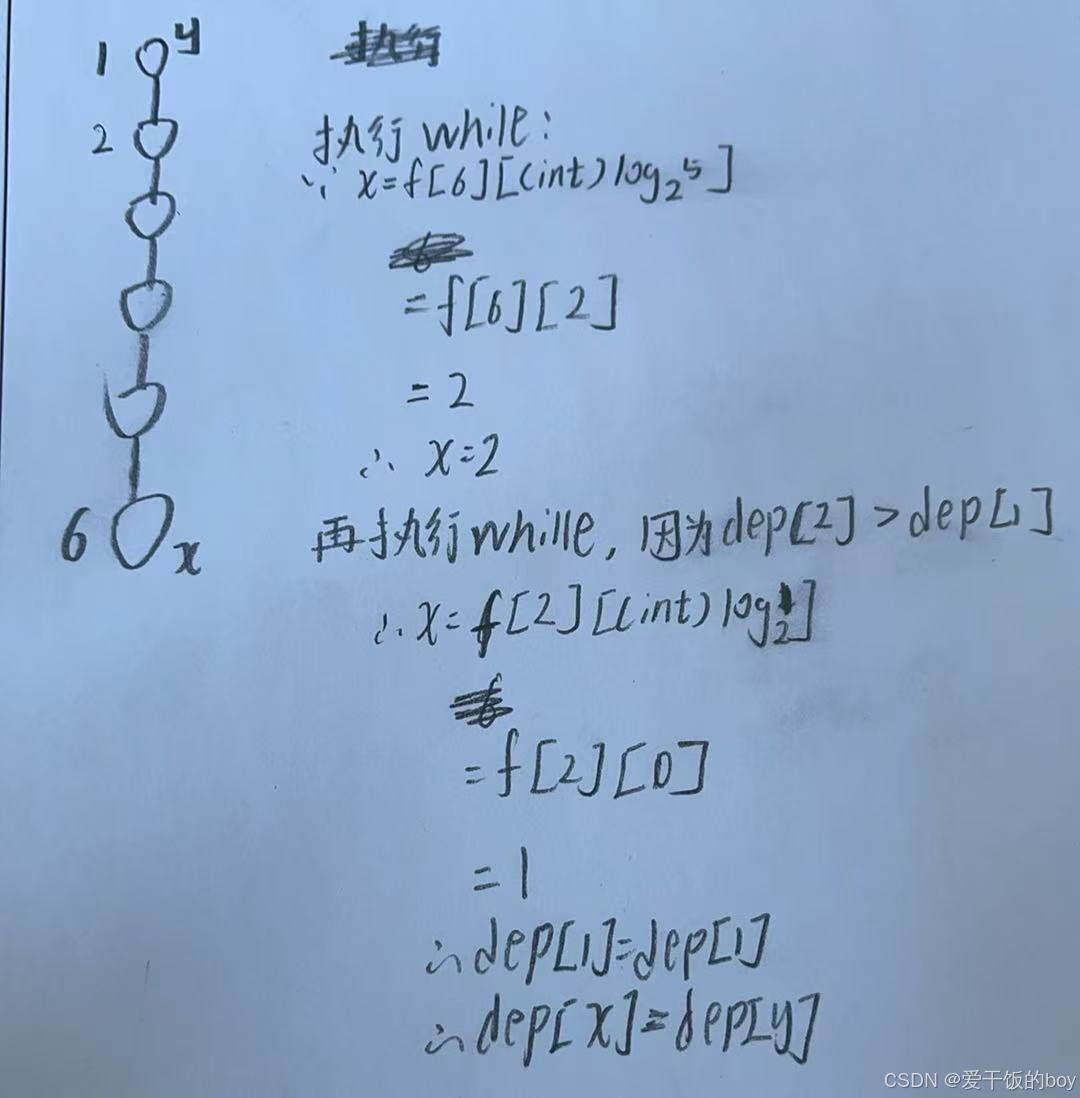 1 y
2
6 x
执行while:
∵ x=f[6][(int)log₂5]
=f[6][2]
=2
∴ x=2
再执行whille,因为dep[2]>dep[1]
∴ x=f[2][(int)log₂1]
=f[2][0]
=1
∴dep[1]=dep[1]
∴dep[x]=dep[y]
CSDN @爱干饭的boy